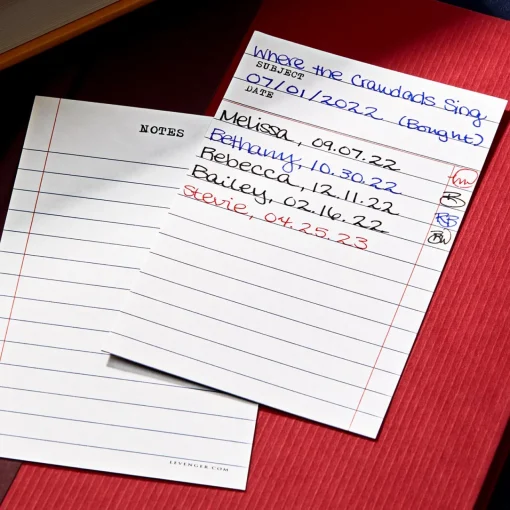 Where the Crawdads Sing
SUBJECT
07/01/2022 (Bought)
DATE
Melissa, 09.07.22
Bethany, 10.30.22
Rebecca, 12.11.22
Bailey, 02.16.22
Stevie, 04.25.23
NOTES
LEVENGER.COM